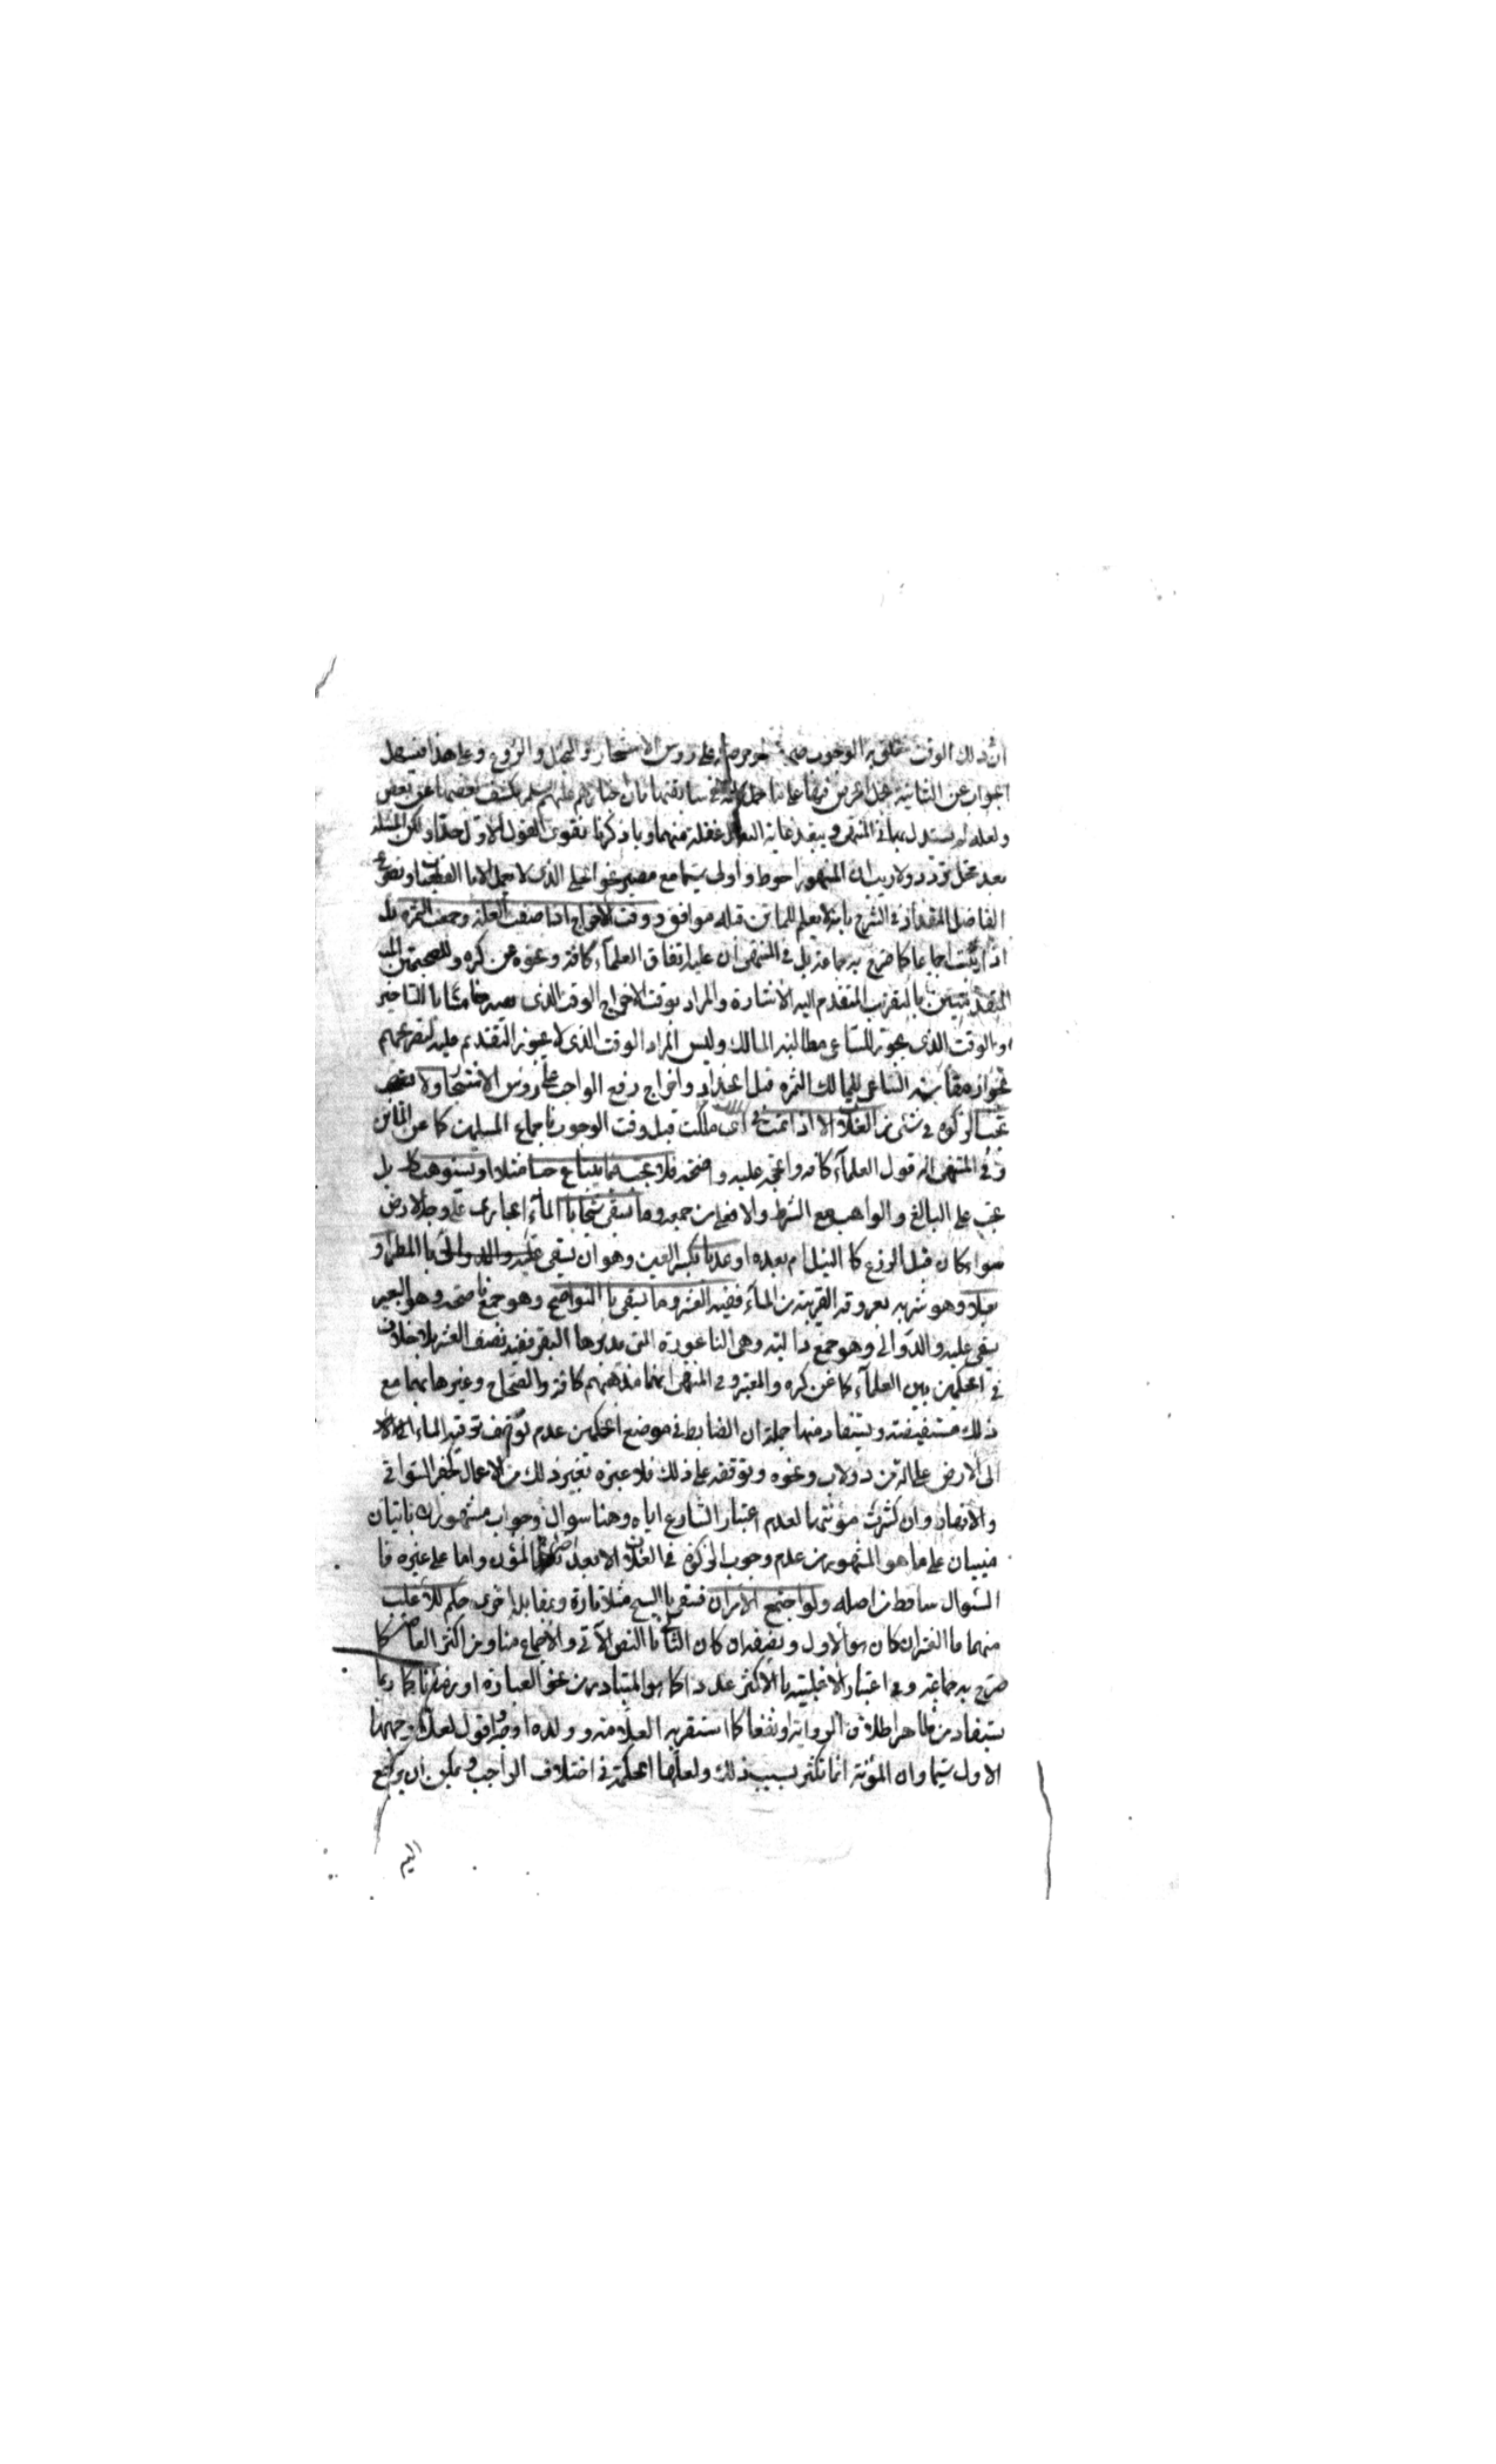 ان ذلك الوقت تعلق به الوجوب صحة على رؤس الاشجار والنخل والزروع وعلى هذا فيسهل
الجواب عن الثانية على ما في سابقتها فان اخبارهم عليهم سلم يكشف بعضها عن بعض
ولعله لم يستدل بها في المنتهى ويبعد غاية البعد غفلة منهما وبما ذكرنا يقوى القول الاول جدا ولكن المسئلة
بعد محل تردد ولا ريب ان المشهور احوط واولى سيما مع مصير نحو الحلي الذي لا يعمل الا بالقطعيات
الفاضل المقداد في الشرح بانه لا يعلم للماتن قبله موافق ووقت الاخراج اذا صفت الغلة وجمعت الثمرة بل
اجماعا كما صرح به جماعة بل في المنتهى ان عليه اتفاق العلماء كافة ونحوه عن كره
بالتقريب المتقدم اليه الاشارة والمراد بوقت الاخراج الوقت الذي يصير ضامنا بالتاخير
او الوقت الذي يجوز للساعي مطالبة المالك وليس المراد الوقت الذي لا يجوز التقديم عليه لتصريحهم
بجواز مقاسمة الساعي للمالك الثمرة قبل الجذاذ واخراج رفع الواجب على رؤس الاشجار ولا
تجب الزكوة في شئ من الغلات الا اذا نمت في الملك اى ملكت قبل وقت الوجوب باجماع المسلمين كما عن الماتن
وفي المنتهى انه قول العلماء كافة والحجة عليه واضحة فلا تجب فيما يبتاع حبا مثلا او يستوهب بل
تجب على البايع والواهب مع الشرط والا فعلى من جمعه وما يسقى سيحا بالماء الجارى على وجه الارض
سواء كان قبل الزرع كالنيل ام بعده او عذيا بكسر العين وهو ان يسقى بالمطر او
بعلا وهو شربه بعروقه القريبة من الماء ففيه العشر وما يسقى بالنواضح وهو جمع ناضحة وهو البعير
يسقى عليه والدوالي وهو جمع دالية وهى الناعورة التى يديرها البقر نفيه نصف العشر بلا خلاف
في الحكمين بين العلماء كما عن كره والمعتبر وفي المنتهى انهما مذهبهم كافة والصحاح وغيرها بهما مع
ذلك مستفيضة ويستفاد منها جملة ان الضابط في موضع الحكمين عدم توقف ترقية الماء
الى الارض على الة من دولاب ونحوه وتوقفه على ذلك فلا عبرة بغير ذلك من الاعمال كحفر السواقي
والانهار وان كثرت مؤنتها لعدم اعتبار الشارع اياه وهنا سوال وجواب مشهوران ياتيان
مبنيان على ما هو المشهور من عدم وجوب الزكوة في الغلات الا بعد اخراج المؤن واما على غيره فا
السوال ساقط من اصله ولو اجتمع الامران فسقى بالسيح مثلا تارة وبمقابله اخرى حكم للاغلب
منهما فالعشر ان كان هو الاول ونصفه ان كان الثاني بالنص الآتي والاجماع منا ومن اكثر العامة كما
صرح به جماعة وفي اعتبار الاغلبية بالاكثر عددا كما هو المتبادر من نحو العبارة او زمانا كما ربما
يستفاد من ظاهر اطلاق الرواية او نفعا كما استقربه العلامة وولده اوجه اقول لعل اوجهها
الاول سيما وان المؤنة انما تكثر بسبب ذلك ولعلها الحكمة في اختلاف الواجب ويمكن ان يرجع
اليه